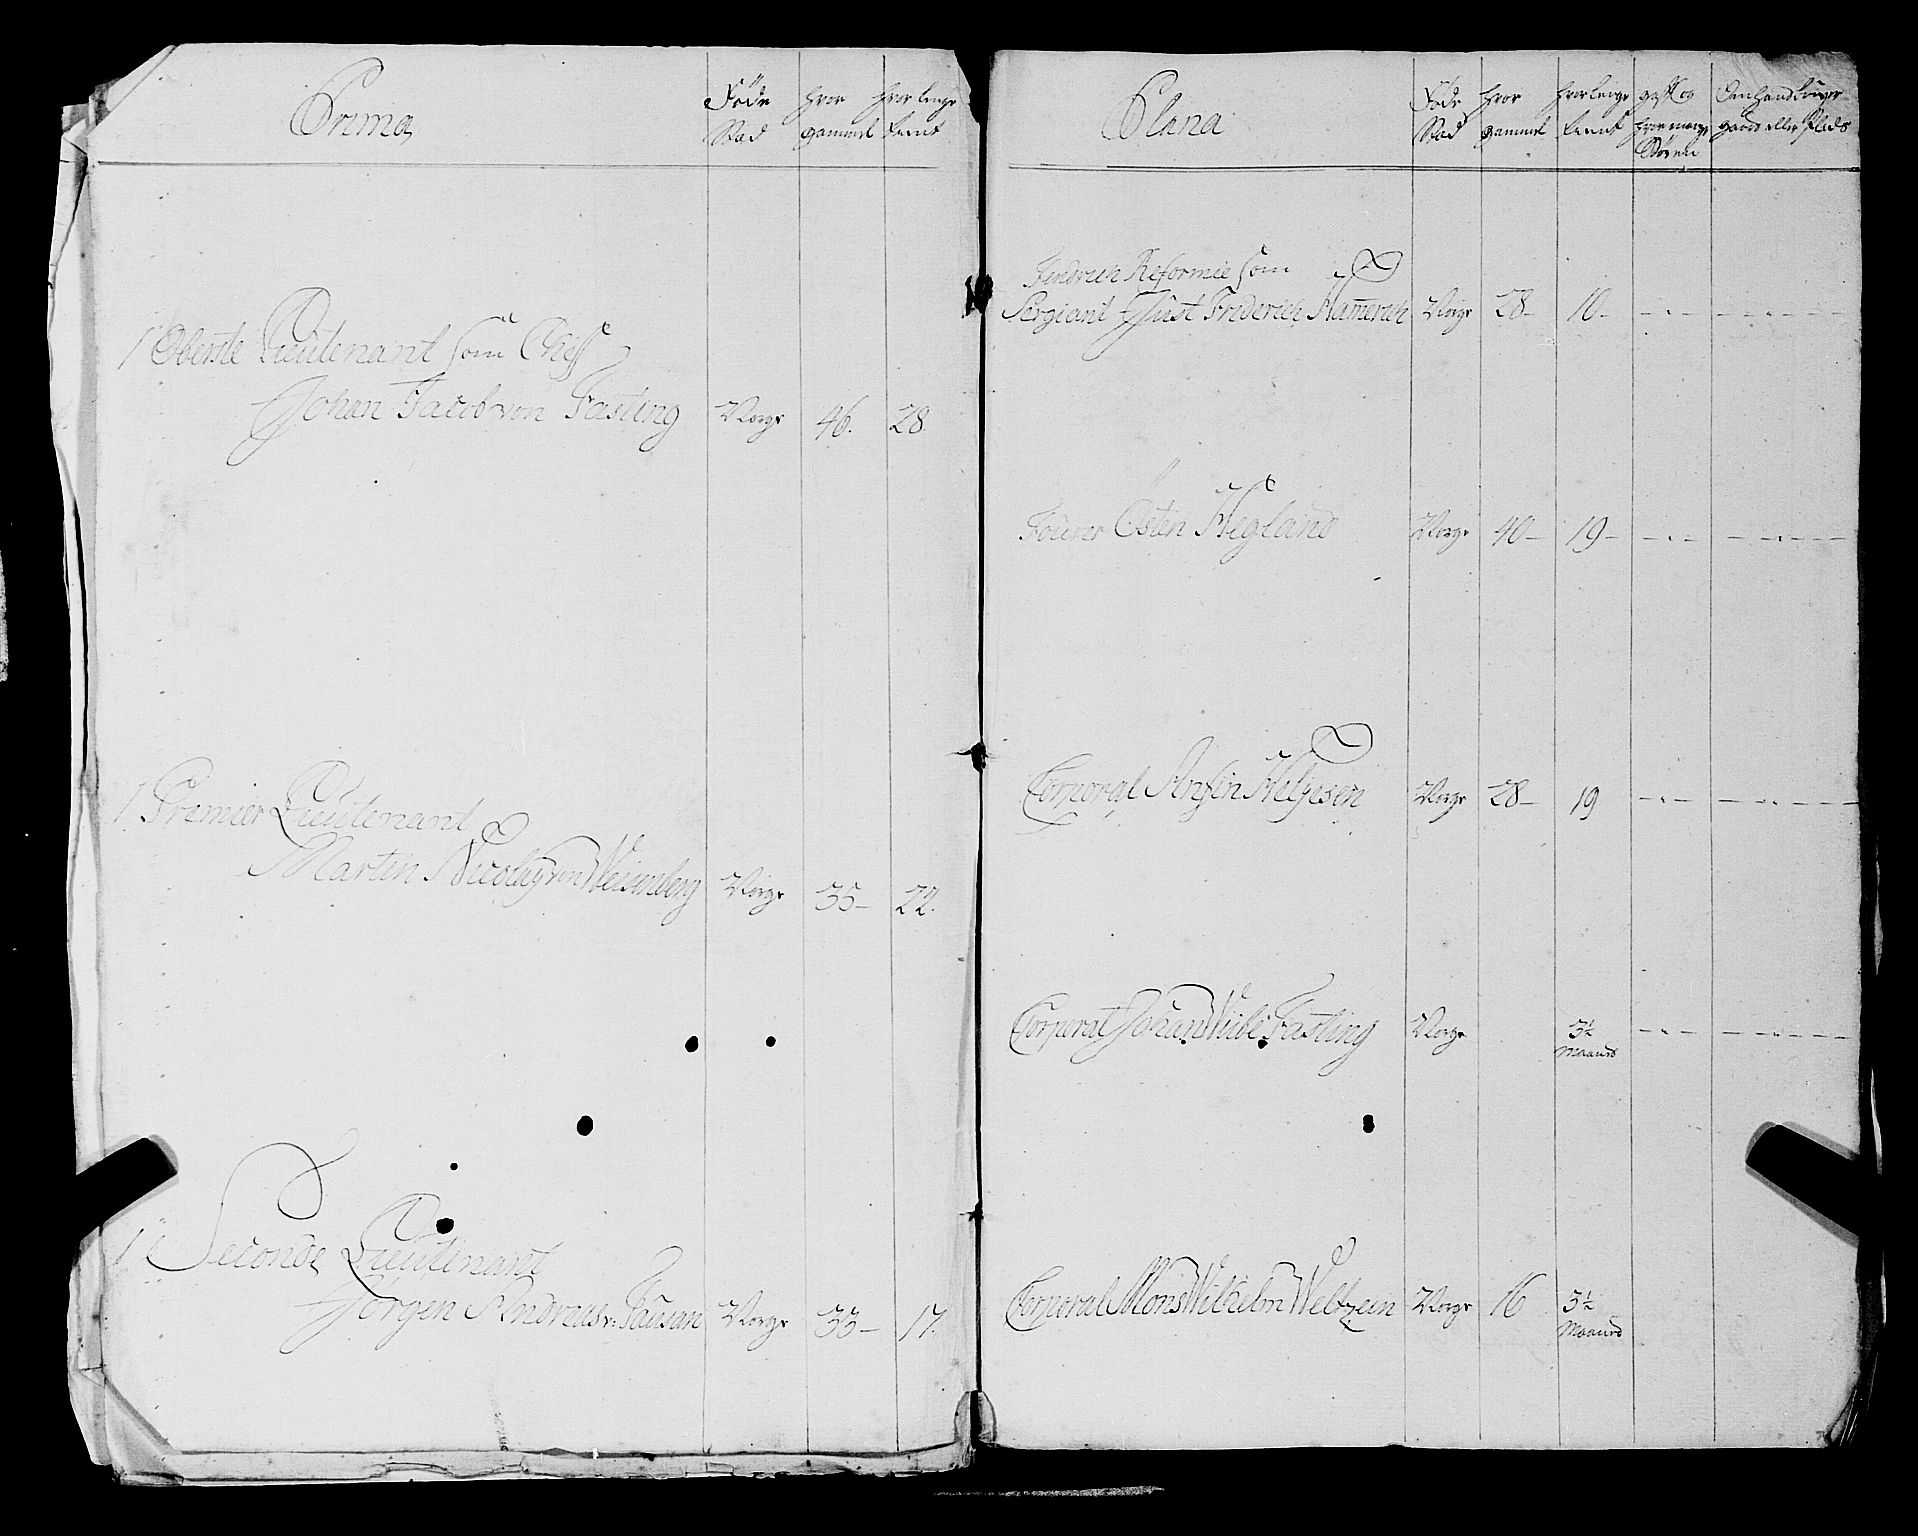 Prima
Føde Stad
hvor gammel
hvor lenge tient
1 Oberste Lieutenant som Cheff
Johan Jacob von Fasting Norge 46. 28.
1 Premier Lieutenant
Martin Nicolay von Weisenberg Norge 35- 22.
1 Seconde Lieutenant
Jørgen Andreas v: Fausan Norge 33- 17.
Plana
Føde Stad
hvor gammel
hvor lenge tient
gift og hvor mange Børn
Om hand bruger gaard eller Plads
Fendrich Reformie som
Sergiant Just Friderich Ham̅erich Norge 28- 10-
Fourer Østen Hegland Norge 40- 19-
Corporal Anfin Helgesen Norge 28- 19
Corporal Johan Wibe Fasting Norge 3½
Maaned
Corporal Mons Wilhelm Weltzein Norge 16 3½
Maaned